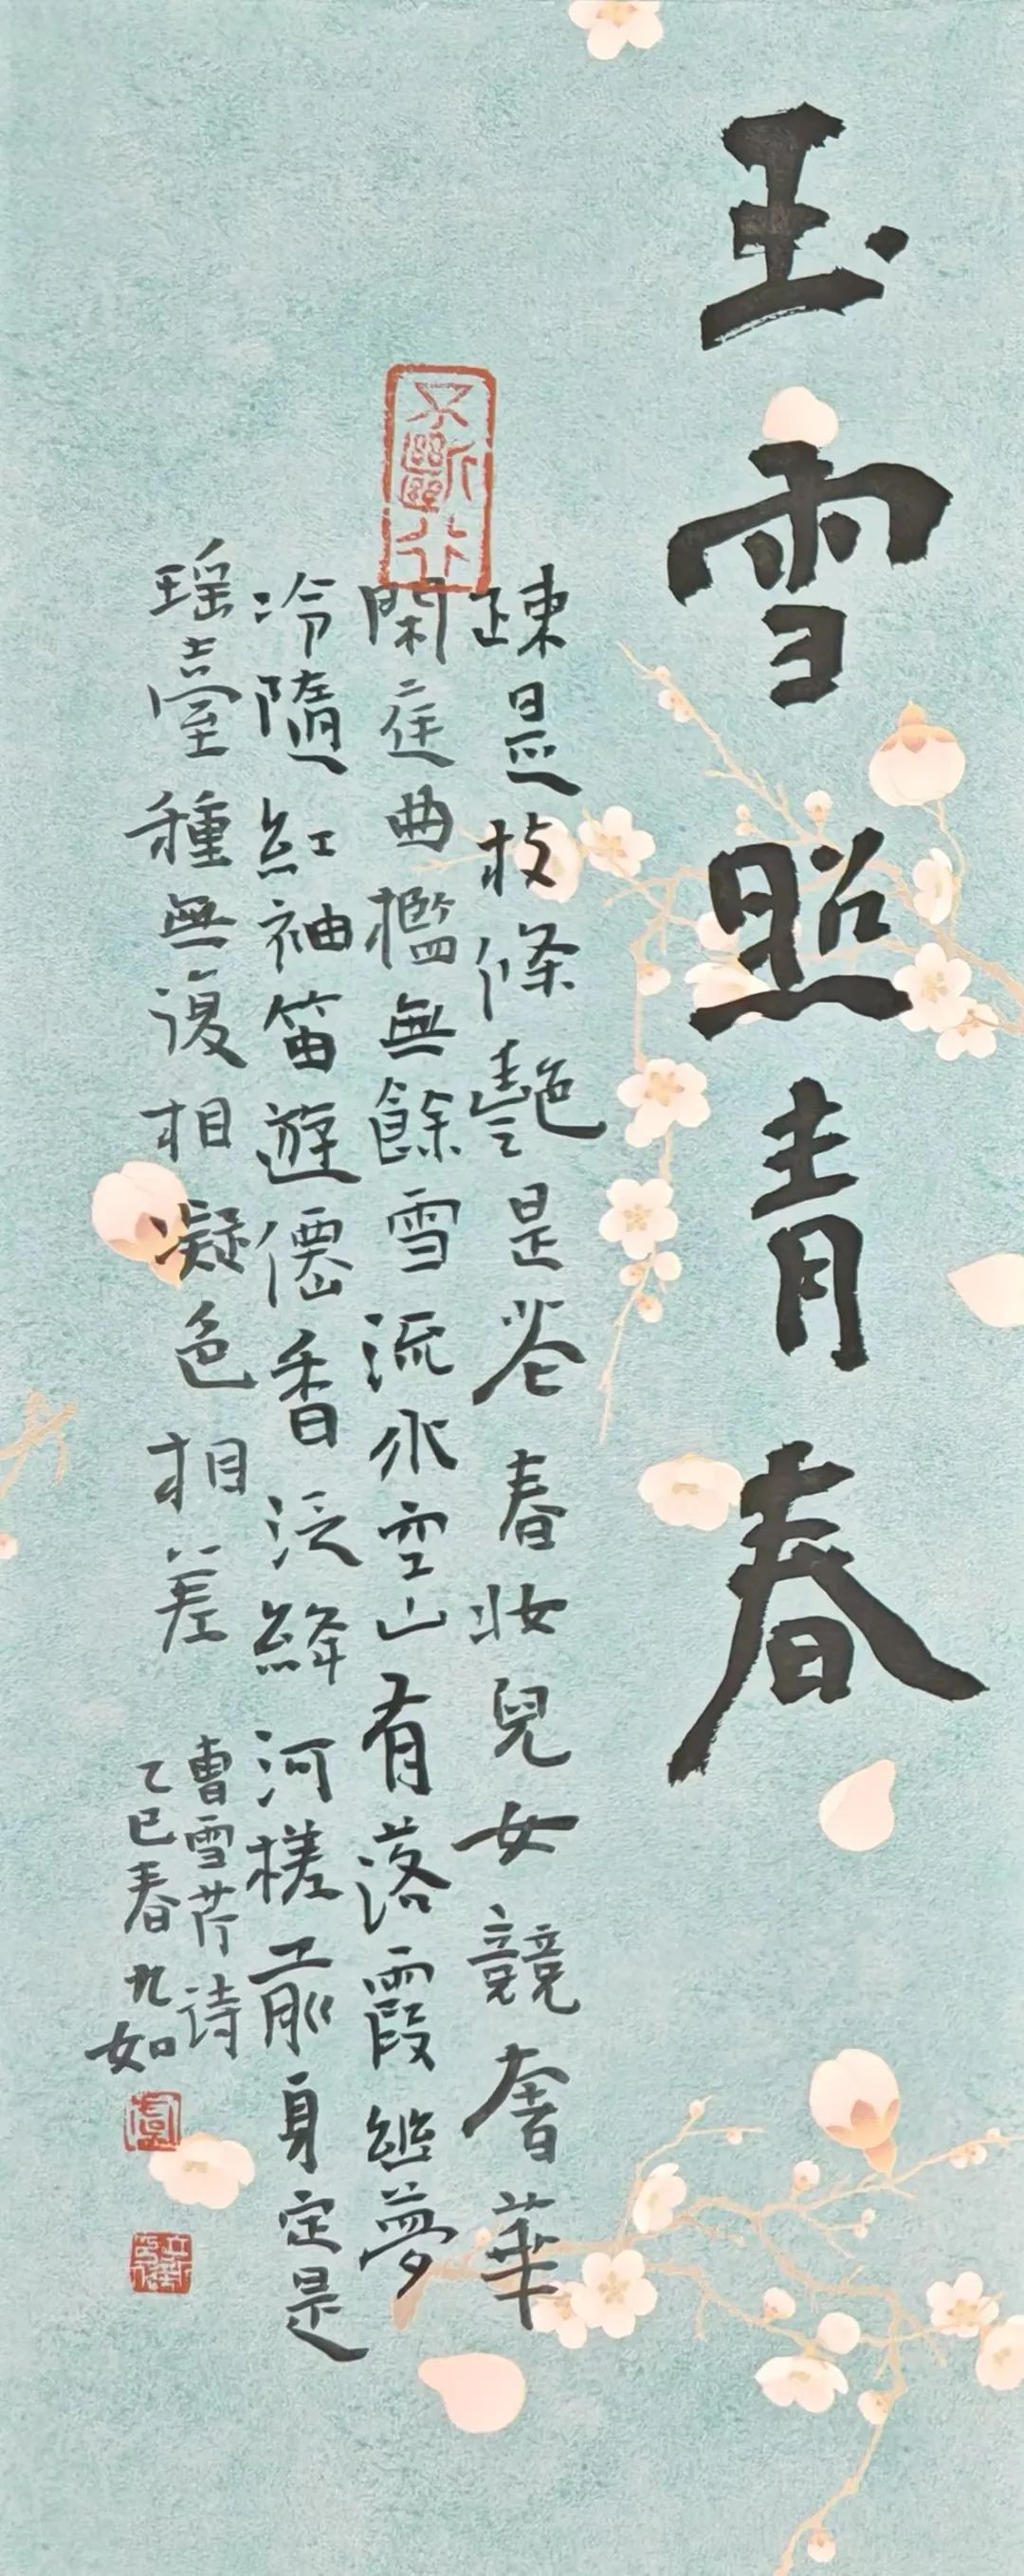 玉雪照青春
疎是枝條艷是花春妝兒女競奢華
閑庭曲檻無餘雪流水空山有落霞幽夢
冷隨紅袖笛遊僊香泛絳河槎前身定是
瑶臺種無復相凝色相差
曹雪芹诗
乙巳春九如